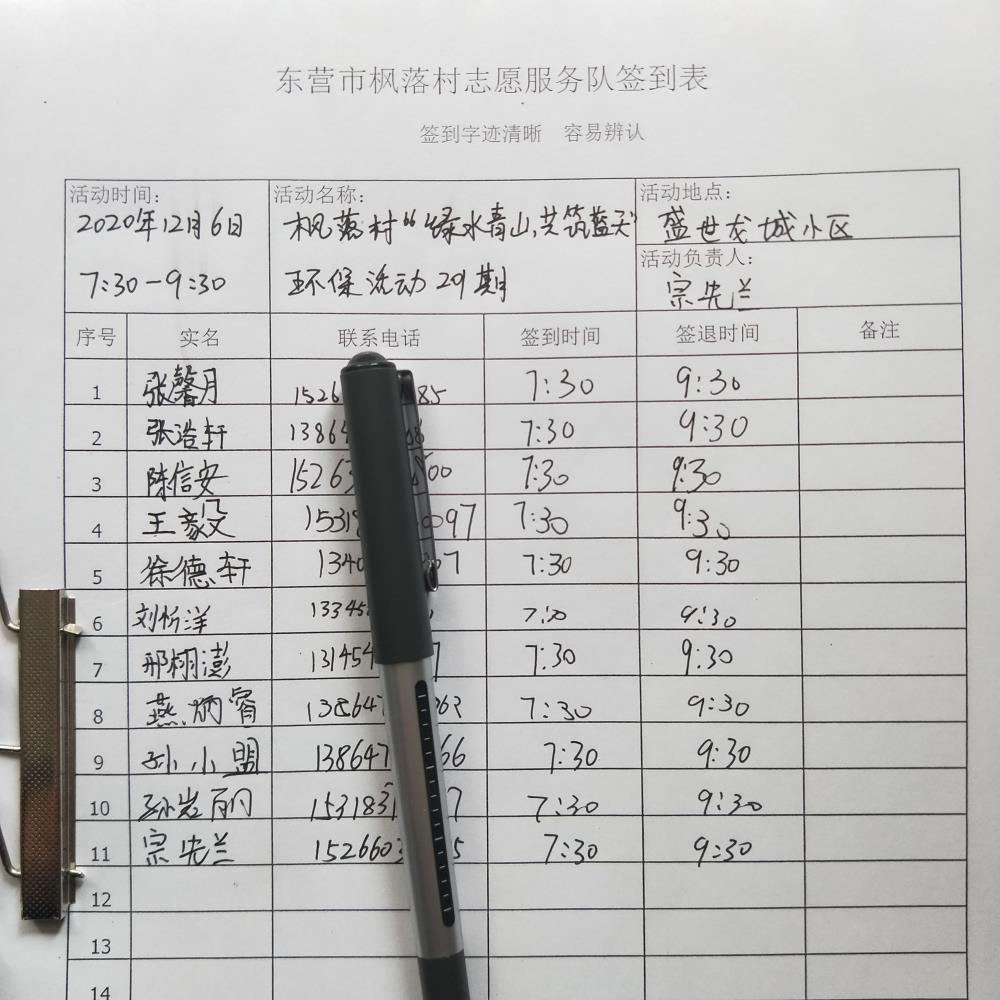 东营市枫落村志愿服务队签到表
签到字迹清晰 容易辨认
活动时间: 活动名称: 活动地点:
2020年12月6日 枫落村“绿水青山,共筑蓝天” 盛世龙城小区
活动负责人:
7:30-9:30 环保活动 291期 宗先兰
序号 实名 联系电话 签到时间 签退时间 备注
1 张馨月 1526 85 7:30 9:30
2 张浩轩 1386 7:30 9:30
3 陈信安 15263 00 7:30 9:30
4 王毅 1531 097 7:30 9:30
5 徐德轩 1340 7 7:30 9:30
6 刘忻洋 13345 7:30 9:30
7 邢栩澎 131454 7 7:30 9:30
8 燕炳睿 138647 63 7:30 9:30
9 孙小盟 138647 66 7:30 9:30
10 孙岩丽 153183 7 7:30 9:30
11 宗先兰 152660 5 7:30 9:30
12
13
14